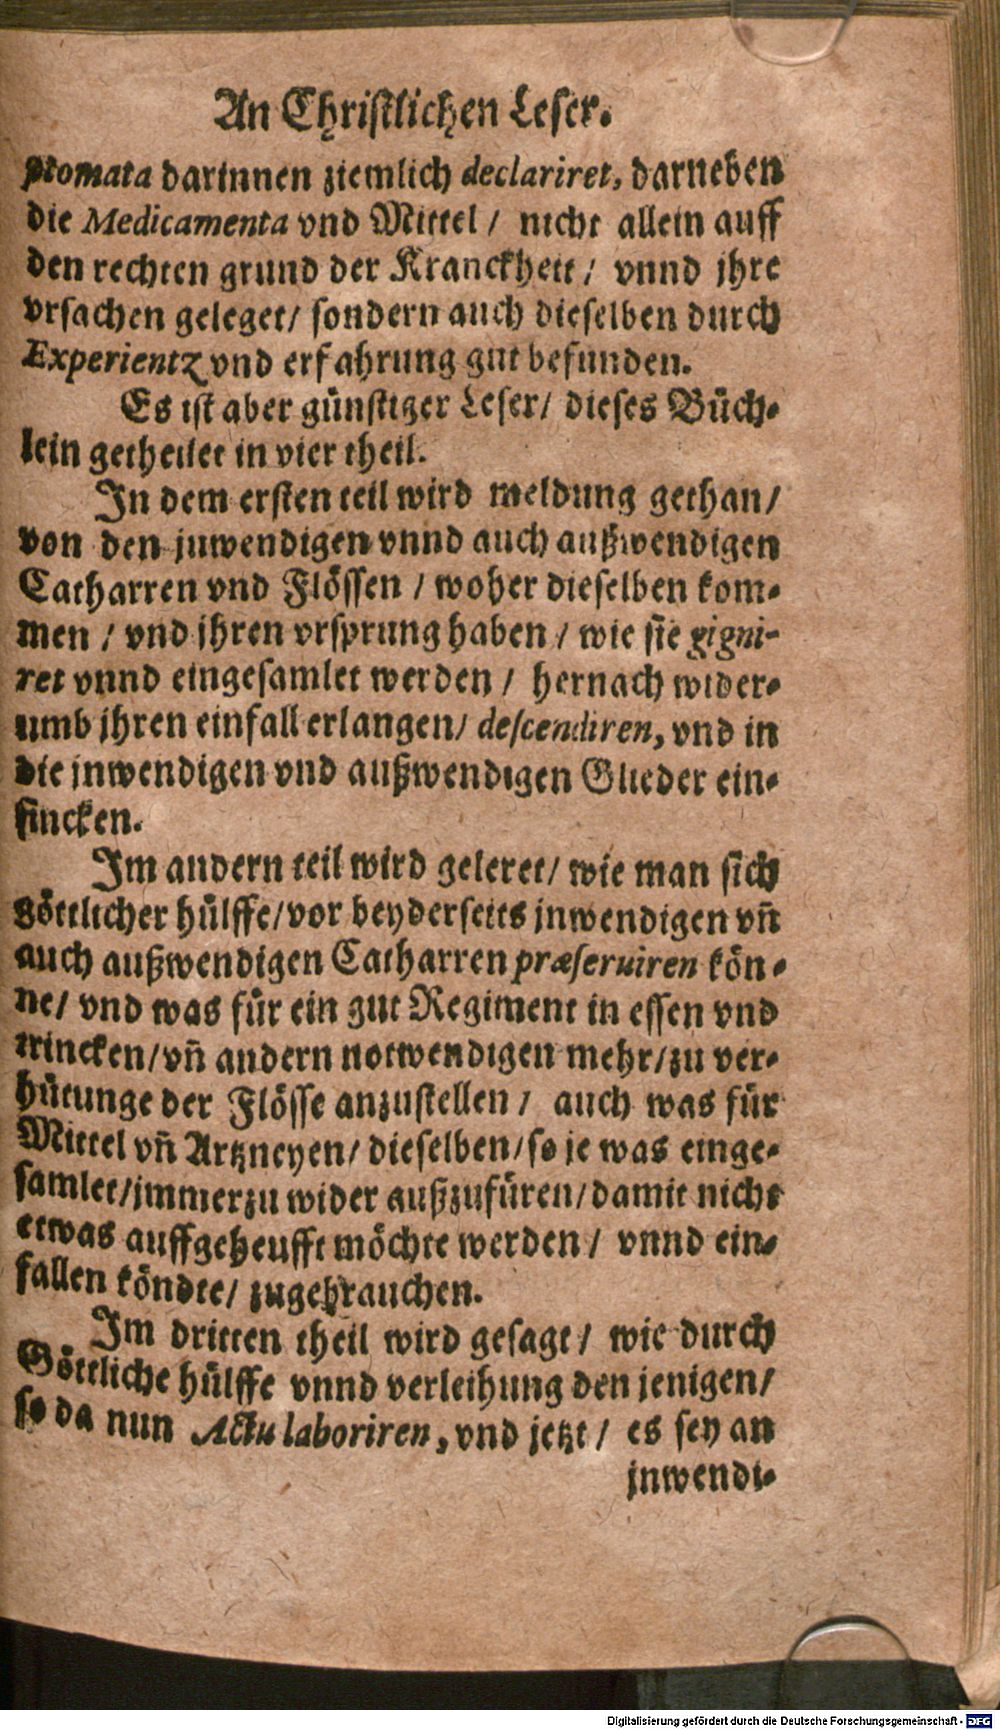 An Christlichen Leser.
ptomata darinnen ziemlich declariret, darneben
die Medicamenta vnd Mittel / nicht allein auff
den rechten grund der Kranckheit / vnnd jhre
vrsachen geleget/ sondern auch dieselben durch
Experientz vnd erfahrung gut befunden.
Es ist aber günstiger Leser/ dieses Büch-
lein getheilet in vier theil.
In dem ersten teil wird meldung gethan/
von den juwendigen vnnd auch außwendigen
Catharren vnd Flössen / woher dieselben kom-
men / vnd jhren vrsprung haben / wie sie gigni-
ret vnnd eingesamlet werden / hernach wider-
umb jhren einfall erlangen/ descendiren, vnd in
die jnwendigen vnd außwendigen Glieder ein-
sincken.
Im andern teil wird geleret/ wie man sich
Göttlicher hülffe/vor beyderseits jnwendigen vñ
auch außwendigen Catharren præseruiren kön-
ne/ vnd was für ein gut Regiment in essen vnd
trincken/vñ andern notwendigen mehr/zu ver-
hütunge der Flösse anzustellen / auch was für
Mittel vñ Artzneyen/ dieselben/so je was einge-
samlet/jmmerzu wider außzufüren/damit nicht
etwas auffgeheufft möchte werden / vnnd ein-
fallen köndte/ zugebrauchen.
Im dritten theil wird gesagt / wie durch
Göttliche hülffe vnnd verleihung den jenigen/
so da nun Actu laboriren, vnd jetzt / es sey an
jnwendi-
Digitalisierung gefördert durch die Deutsche Forschungsgemeinschaft - DFG